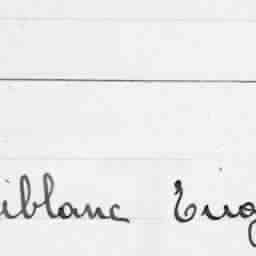 iblanc Eug